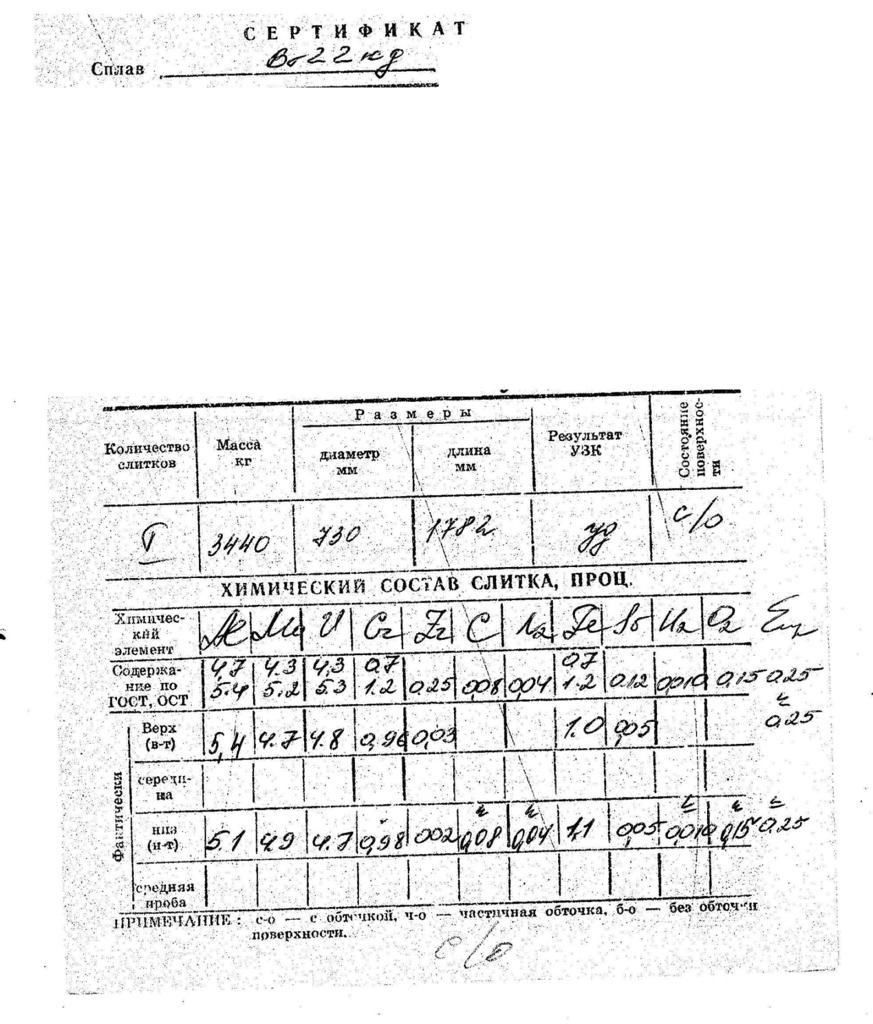 СЕРТИФИКАТ
Сплав Вт22кд
Количество слитков Масса кг Размеры диаметр мм длина мм Результат УЗК Состояние поверхности
I 3440 730 1782 уд с/о
ХИМИЧЕСКИЙ СОСТАВ СЛИТКА, ПРОЦ.
Химический элемент Al Mo V Cr Zr C N2 Fe Si H2 O2
Содержание по ГОСТ, ОСТ 4,7 5.4 4.3 5.2 4,3 5.3 0.7 1.2 0.25 0,08 0,04 0.7 1.2 0.12 0,010 0,15 0.25
Фактически
Верх (в-т) 5,4 4.7 4.8 0,96 0,03 1.0 0,05 ≤ 0,25
середина
низ (н-т) 5.1 4,9 4.7 0,98 002 ≤ 0,08 ≤ 0,04 1,1 0,05 ≤ 0,010 ≤ 0,15 ≤ 0.25
средняя проба
ПРИМЕЧАНИЕ: с-о — с обточкой, ч-о — частичная обточка, б-о — без обточки
поверхности.
с/о